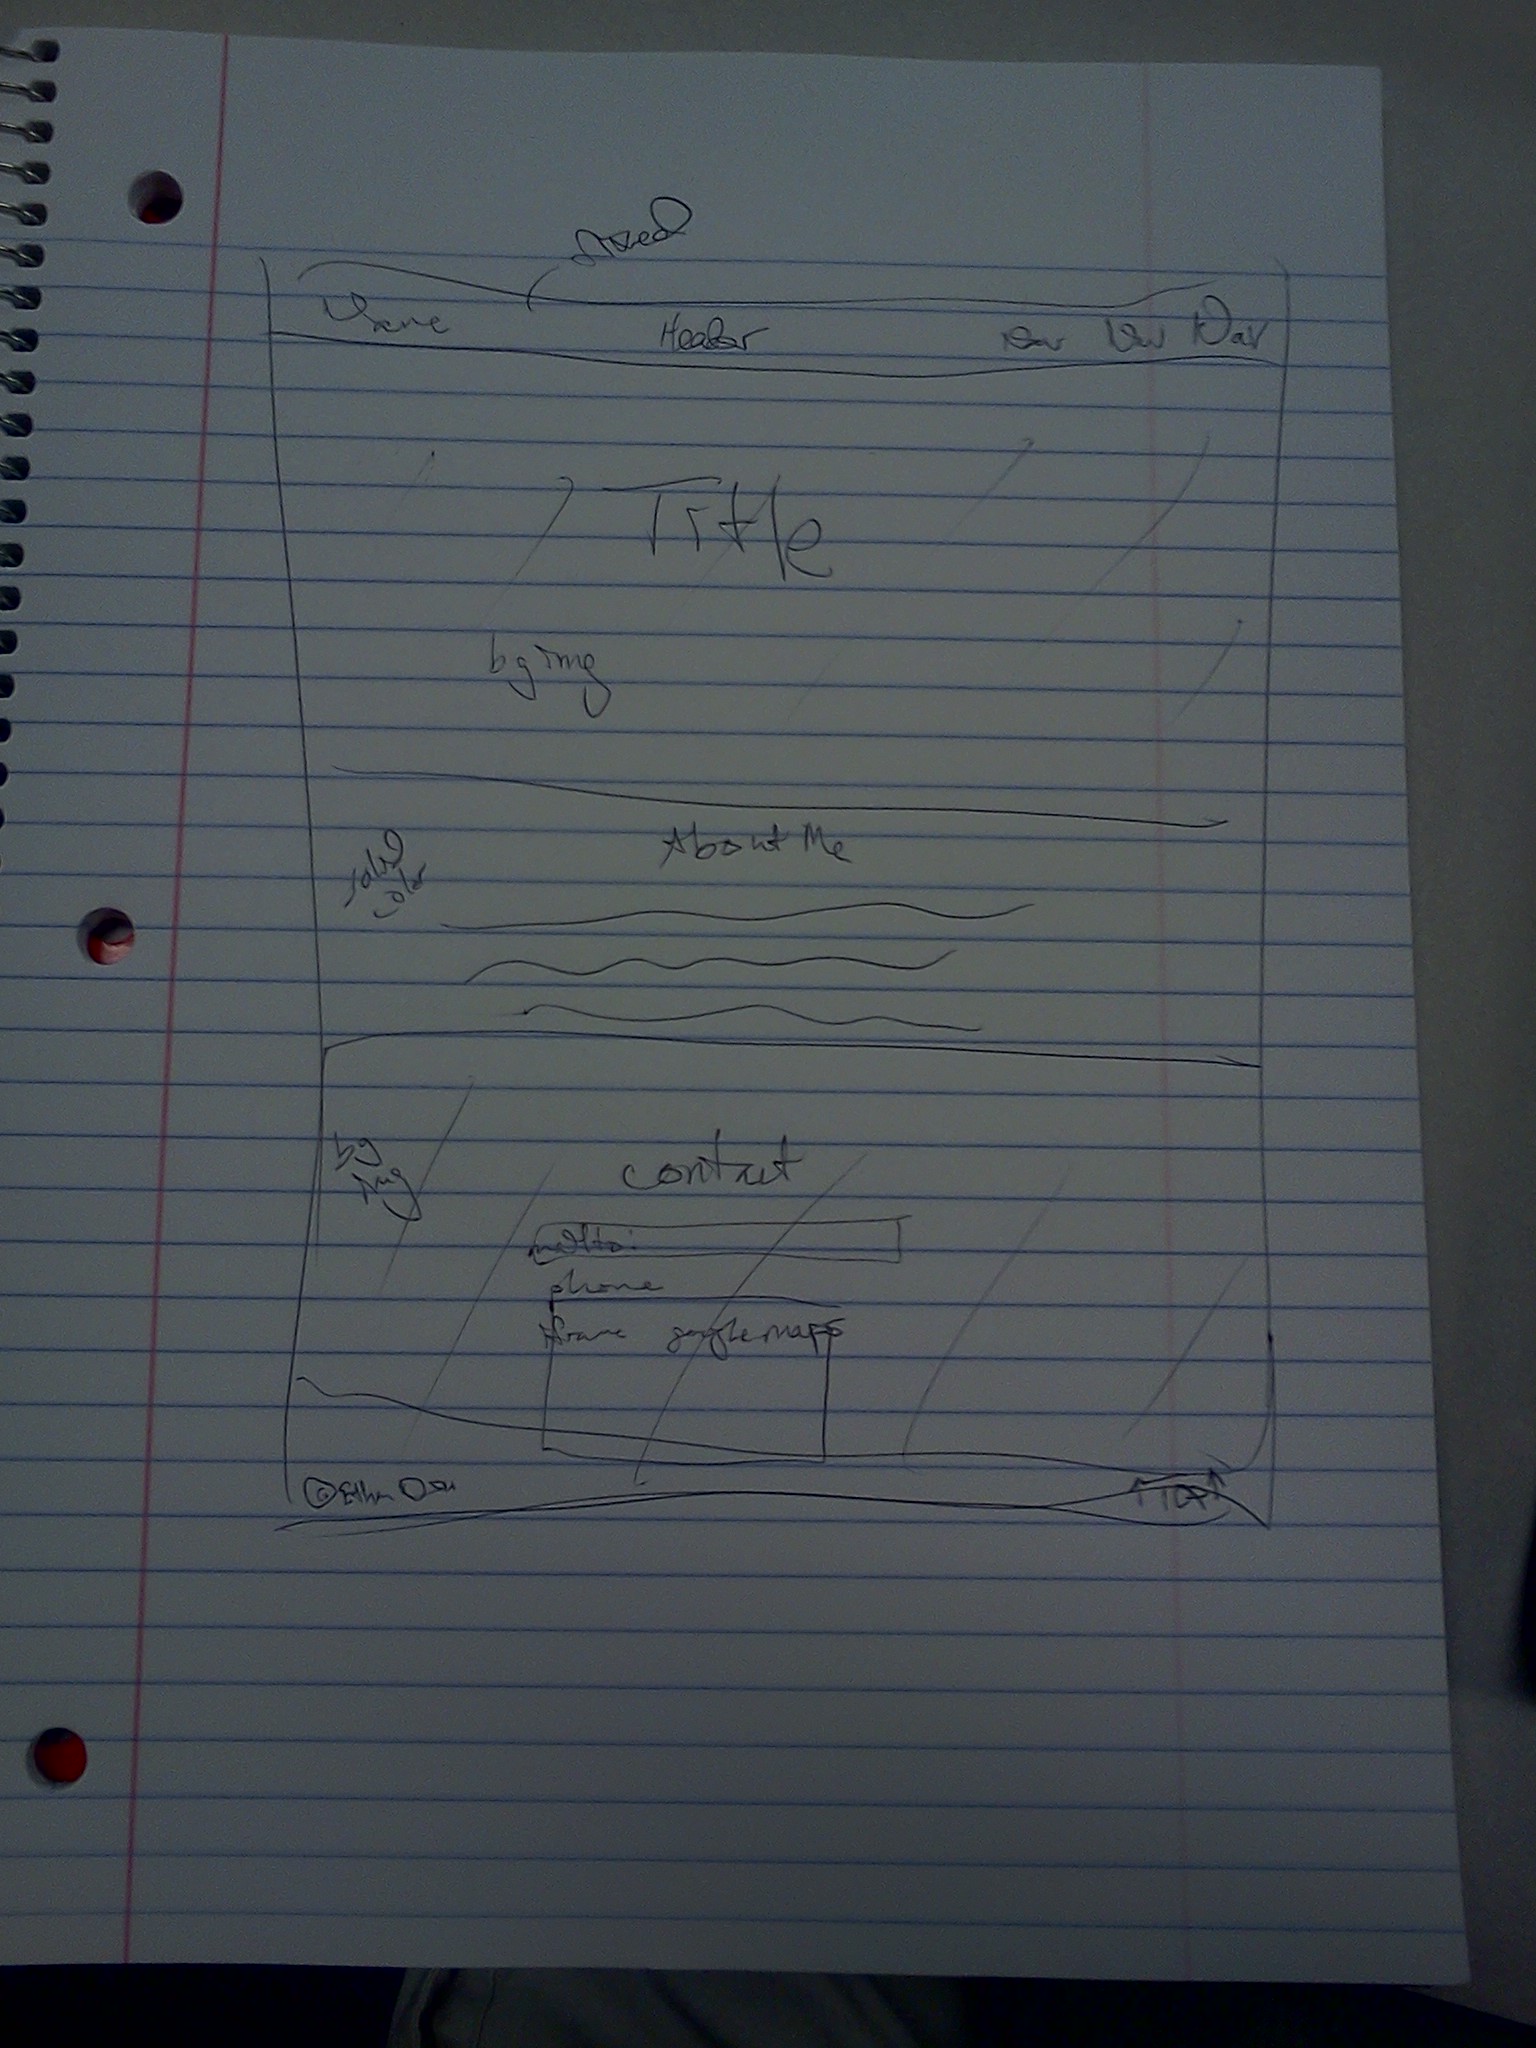 fixed
Name Header Nav Nav Nav
Title
bg img
About Me
solid
color
bg
img
contact
mailto:
phone
iframe google maps
© Ethan